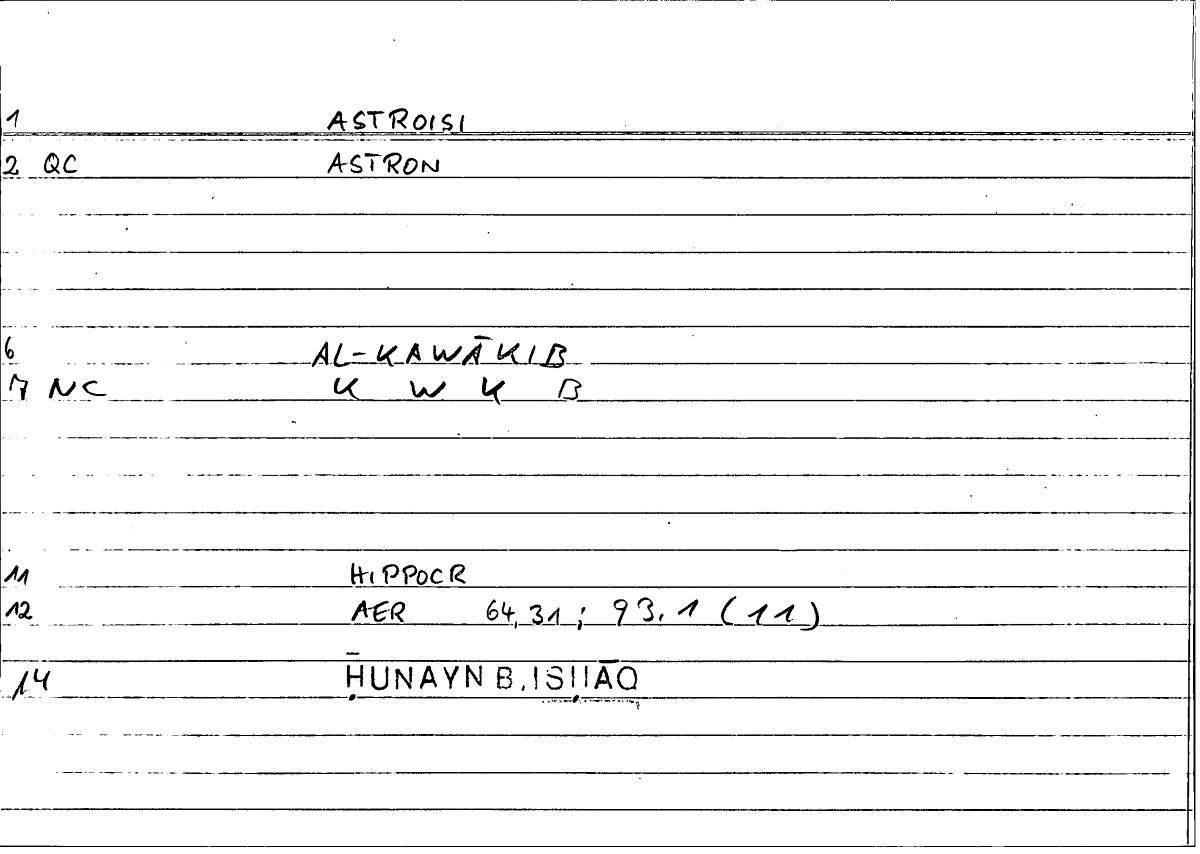 1 ASTROISI
2 QC ASTRON
6 AL-KAWĀKIB
7 NC K W K B
11 HIPPOCR
12 AER 64,31; 93,1 (11)
14 ḤUNAYN B. ISḤĀQ